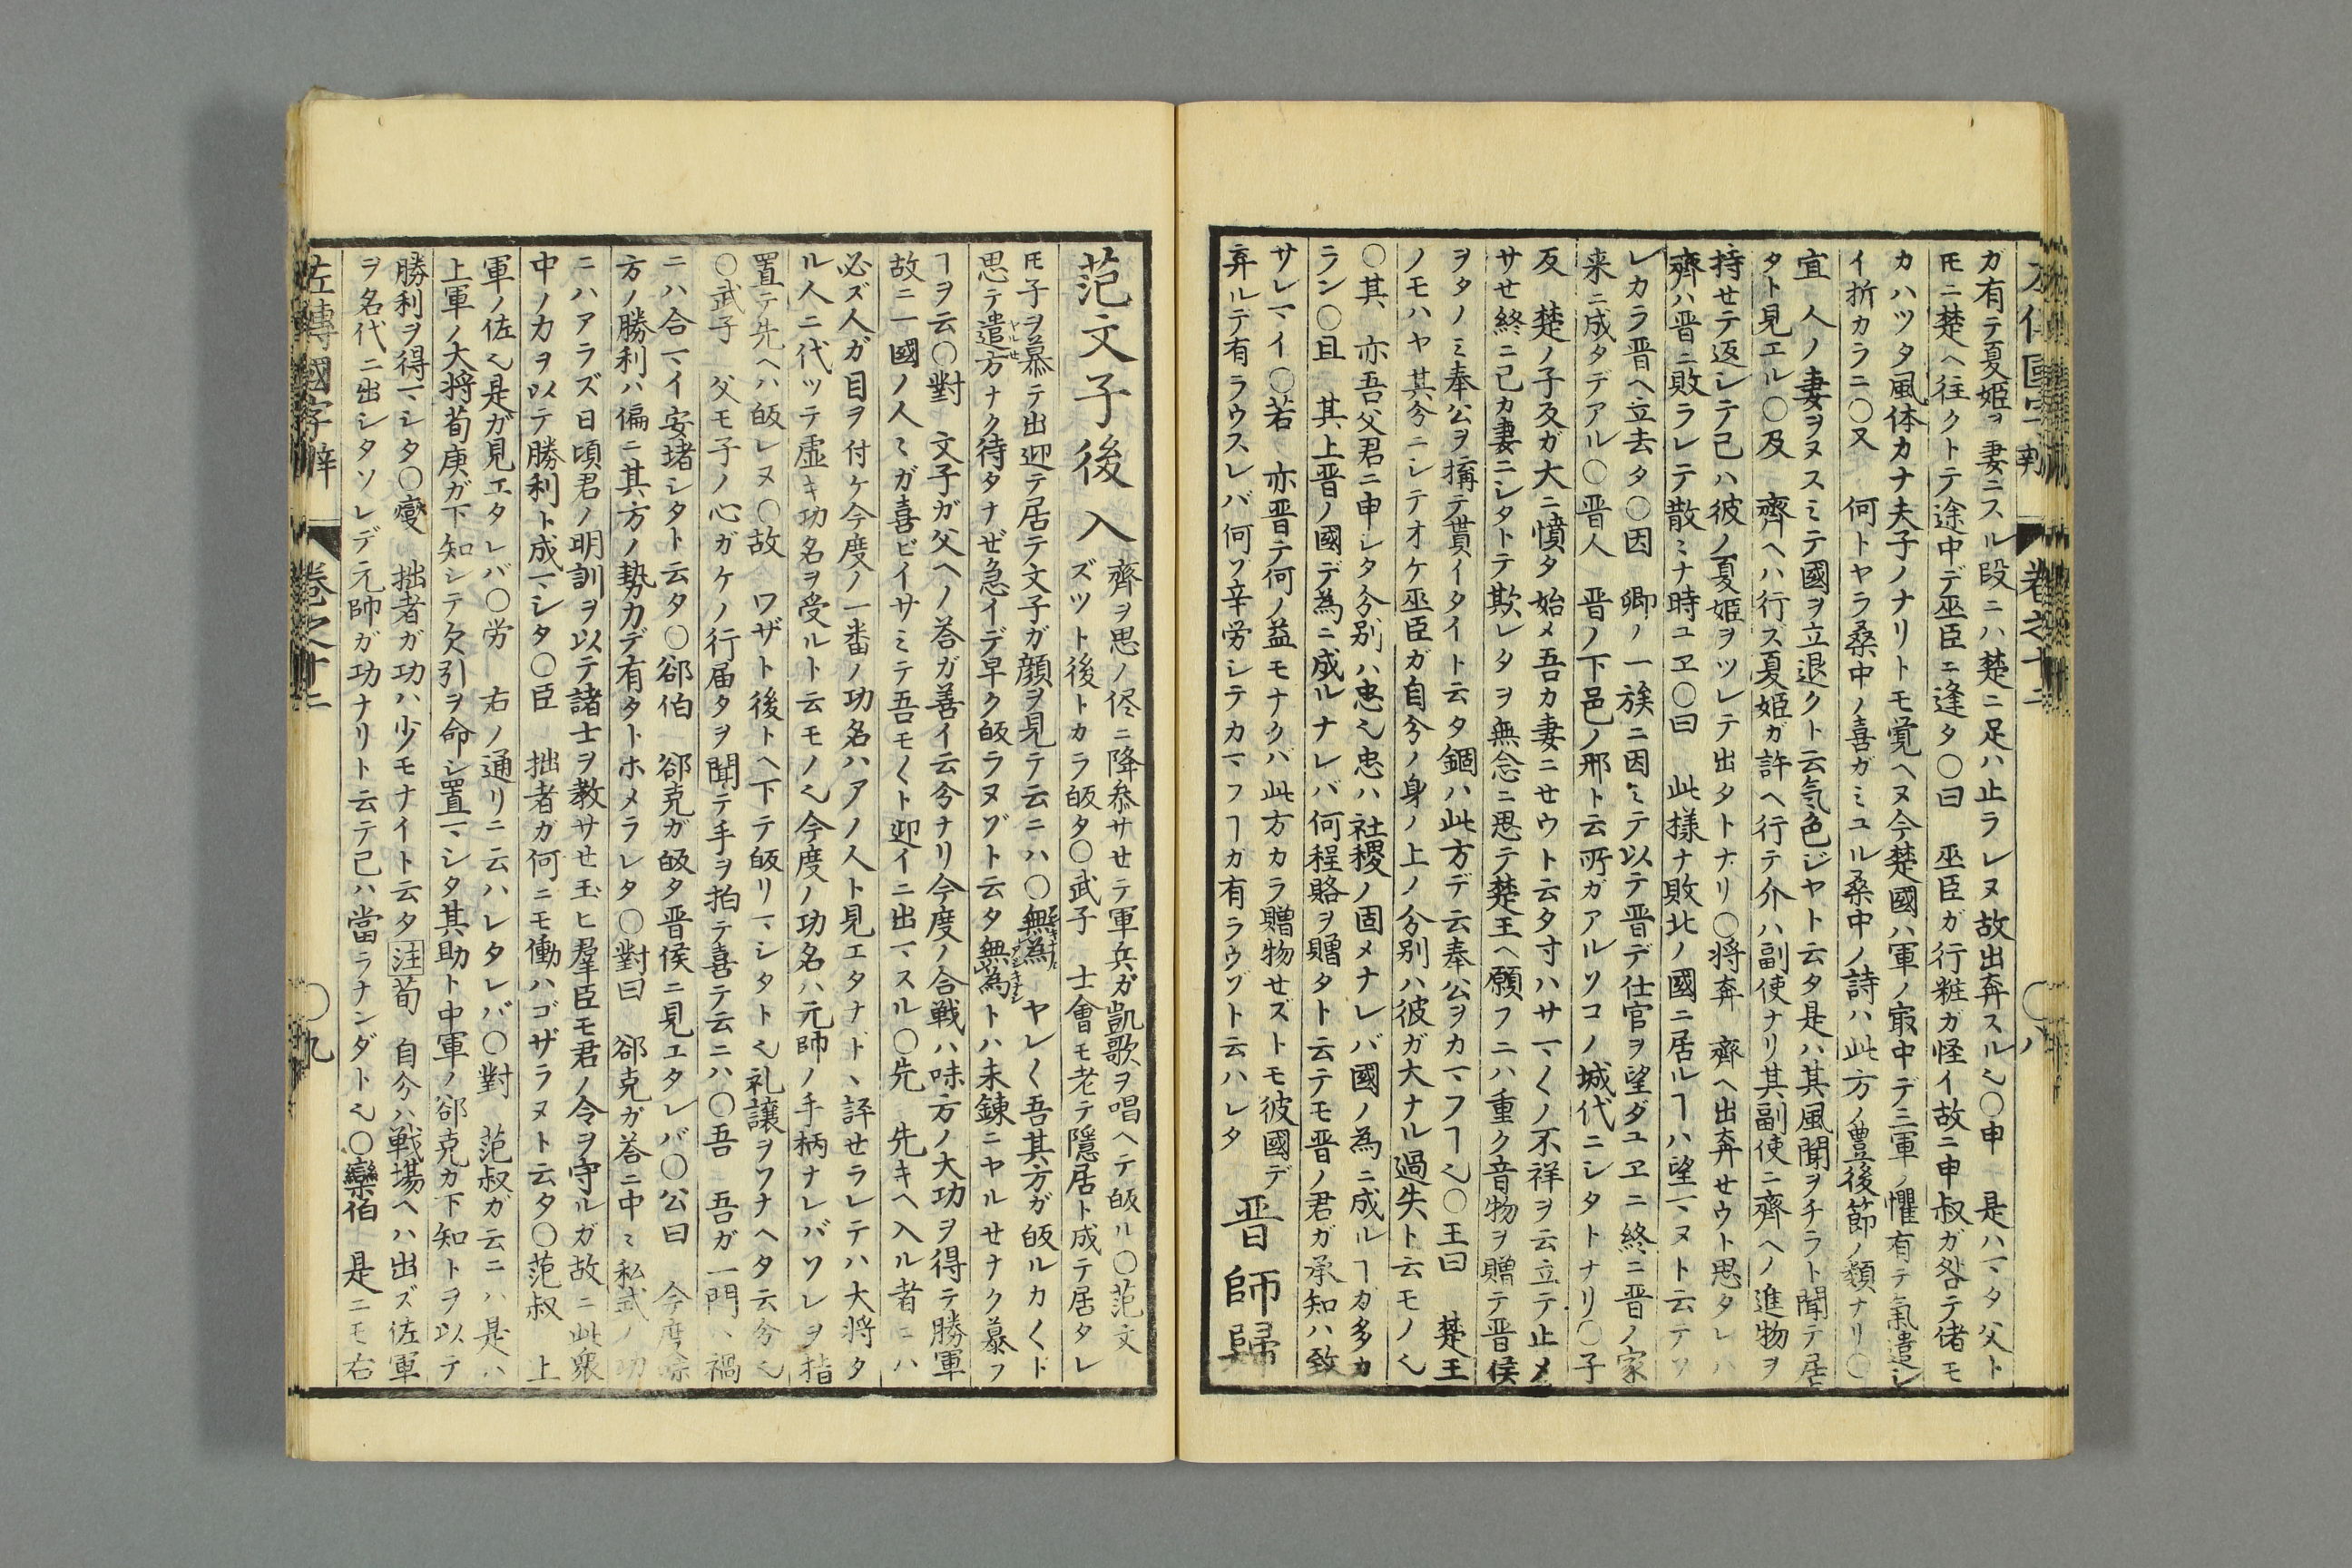 ガ有テ夏姫ヲ妻ニスル段ニハ楚ニ足ハ止ラレヌ故出奔スル也〇申 是ハマタ父ト
𪜈ニ楚ヘ往クトテ途中デ巫臣ニ逢タ〇曰 巫臣ガ行粧ガ怪イ故ニ申叔ガ咎テ偖モ
カハツタ風体カナ夫子ノナリトモ覚ヘヌ今楚國ハ軍ノ㝡中デ三軍ノ懼有テ氣遣シ
イ折カラニ〇又 何トヤラ桑中ノ喜ガミユル桑中ノ詩ハ此方ノ豊後節ノ類ナリ〇
宜 人ノ妻ヲヌスミテ國ヲ立退クト云気色ジヤト云タ是ハ其風聞ヲチラト聞テ居
タト見エル〇及 齊ヘハ行ズ夏姫ガ許ヘ行テ介ハ副使ナリ其副使ニ齊ヘノ進物ヲ
持セテ返シテ己ハ彼ノ夏姫ヲツレテ出タトナリ〇将奔 齊ヘ出奔セウト思タレハ
齊ハ晋ニ敗ラレテ散ミナ時ユヱ〇曰 此様ナ敗北ノ國ニ居ルヿハ望マヌト云テソ
レカラ晋ヘ立去タ〇因 卿ノ一族ニ因ミテ以テ晋デ仕官ヲ望ダユヱニ終ニ晋ノ家
来ニ成タデアル〇晋人 晋ノ下邑ノ邢ト云所ガアルソコノ城代ニシタトナリ〇子
反 楚ノ子反ガ大ニ憤タ始メ吾カ妻ニセウト云タ寸ハサマ〱ノ不祥ヲ云立テ止メ
サセ終ニ己カ妻ニシタトテ欺レタヲ無念ニ思テ楚王ヘ願フニハ重ク音物ヲ贈テ晋侯
ヲタノミ奉公ヲ搆テ貰イタイト云タ錮ハ此方デ云奉公ヲカマフヿ也〇王曰 楚王
ノモハヤ其分ニシテオケ巫臣ガ自分ノ身ノ上ノ分別ハ彼ガ大ナル過失ト云モノ也
〇其 亦吾父君ニ申シタ分別ハ忠也忠ハ社稷ノ固メナレバ國ノ為ニ成ルヿガ多カ
ラン〇且 其上晋ノ國デ為ニ成ルナレバ何程賂ヲ贈タト云テモ晋ノ君ガ承知ハ致
サレマイ〇若 亦晋テ何ノ益モナクバ此方カラ贈物セズトモ彼國デ 晋師歸
弃ルテ有ラウスレバ何ゾ辛労シテカマフヿカ有ラウゾト云ハレタ
巻之十二 〇八
范文子後入 齊ヲ思ノ侭ニ降参サセテ軍兵ガ凱歌ヲ唱ヘテ皈ル〇范文
ズツト後トカラ皈タ〇武子 士會モ老テ隠居ト成テ居タレ
𪜈子ヲ慕テ出迎テ居テ文子ガ顔ヲ見テ云ニハ〇無為 ヤレ〱吾其方ガ皈ルカ〱ト
思テ遣方ナク待タナゼ急イデ早ク皈ラヌゾト云タ無為トハ未錬ニヤルセナク慕フ
ヿヲ云〇對 文子ガ父ヘノ荅ガ善イ云分ナリ今度ノ合戦ハ味方ノ大功ヲ得テ勝軍
故ニ一國ノ人ミガ喜ビイサミテ吾モ〱ト迎イニ出マスル〇先 先キヘ入ル者ニハ
必ズ人ガ目ヲ付ケ今度ノ一番ノ功名ハアノ人ト見エタナド丶評セラレテハ大将タ
ル人ニ代ツテ虚キ功名ヲ受ルト云モノ也今度ノ功名ハ元帥ノ手柄ナレバソレヲ指
置テ先ヘハ皈レヌ〇故 ワザト後トヘ下テ皈リマシタト也礼譲ヲワナヘタ云分也
〇武子 父モ子ノ心ガケノ行届タヲ聞テ手ヲ拍テ喜テ云ニハ〇吾 吾ガ一門ヘ禍
ニハ合マイ安堵シタト云タ〇郤伯 郤克ガ皈タ晋侯ニ見エタレバ〇公曰 今度
方ノ勝利ハ偏ニ其方ノ勢力デ有タトホメラレタ〇對曰 郤克ガ荅ニ中ミ私式ノ功
ニハアラズ日頃君ノ明訓ヲ以テ諸士ヲ教サセ玉ヒ羣臣モ君ノ令ヲ守ルガ故ニ此衆
中ノカヲ以テ勝利ト成マシタ〇臣 拙者ガ何ニモ働ハゴザラヌト云タ〇范叔 上
軍ノ佐也是ガ見エタレバ〇労 右ノ通リニ云ハレタレバ〇對 范叔ガ云ニハ是ハ
上軍ノ大将荀庚ガ下知シテ欠引ヲ命シ置マシタ其助ト中軍ノ郤克カ下知トヲ以テ
勝利ヲ得マシタ〇燮 拙者ガ功ハ少モナイト云タ注荀 自分ハ戦場ヘハ出ズ佐軍
ヲ名代ニ出シタソレデ元帥ガ功ナリト云テ己ハ當ラナンダト也〇欒伯 是ニモ右
佐傳國字辯 巻之十二 〇九